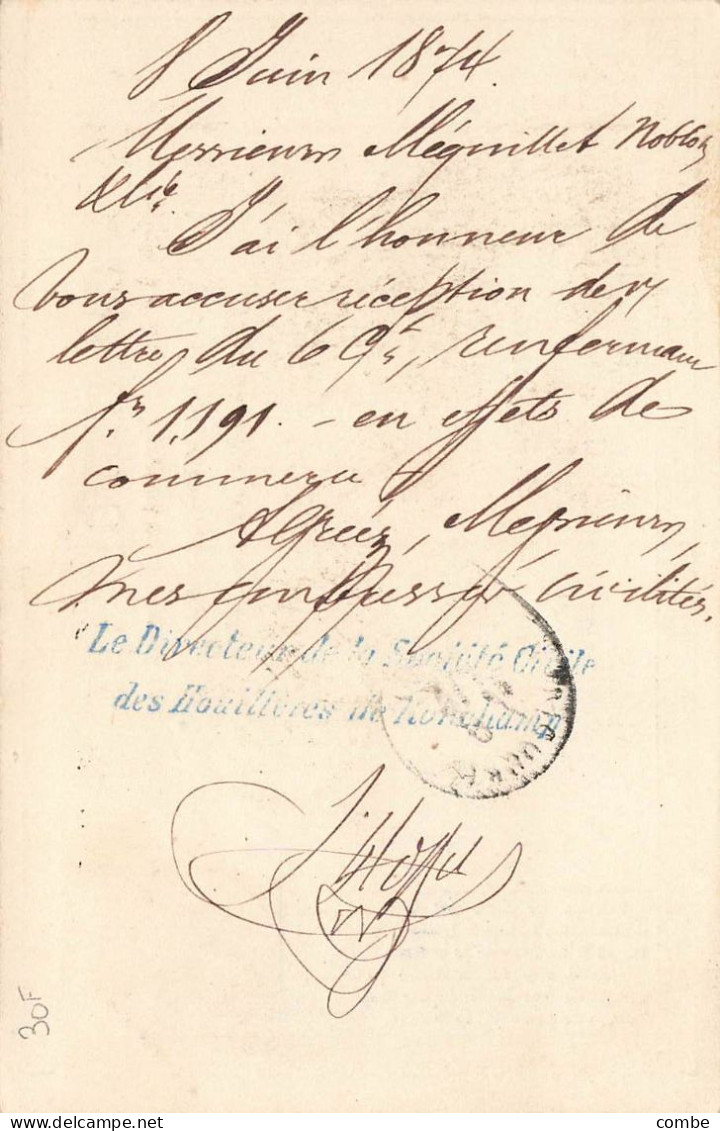 8 Juin 1874.
Messieurs Méquillet Noblot
& Cie.
J'ai l'honneur de
vous accuser réception de v/
lettre du 6 Ct, renfermant
fr 1,191. - en effets de
commerce
Agréez, Messieurs,
mes empressées civilités.
Le Directeur de la Société Civile
des Houillères de Ronchamp
30F
combe